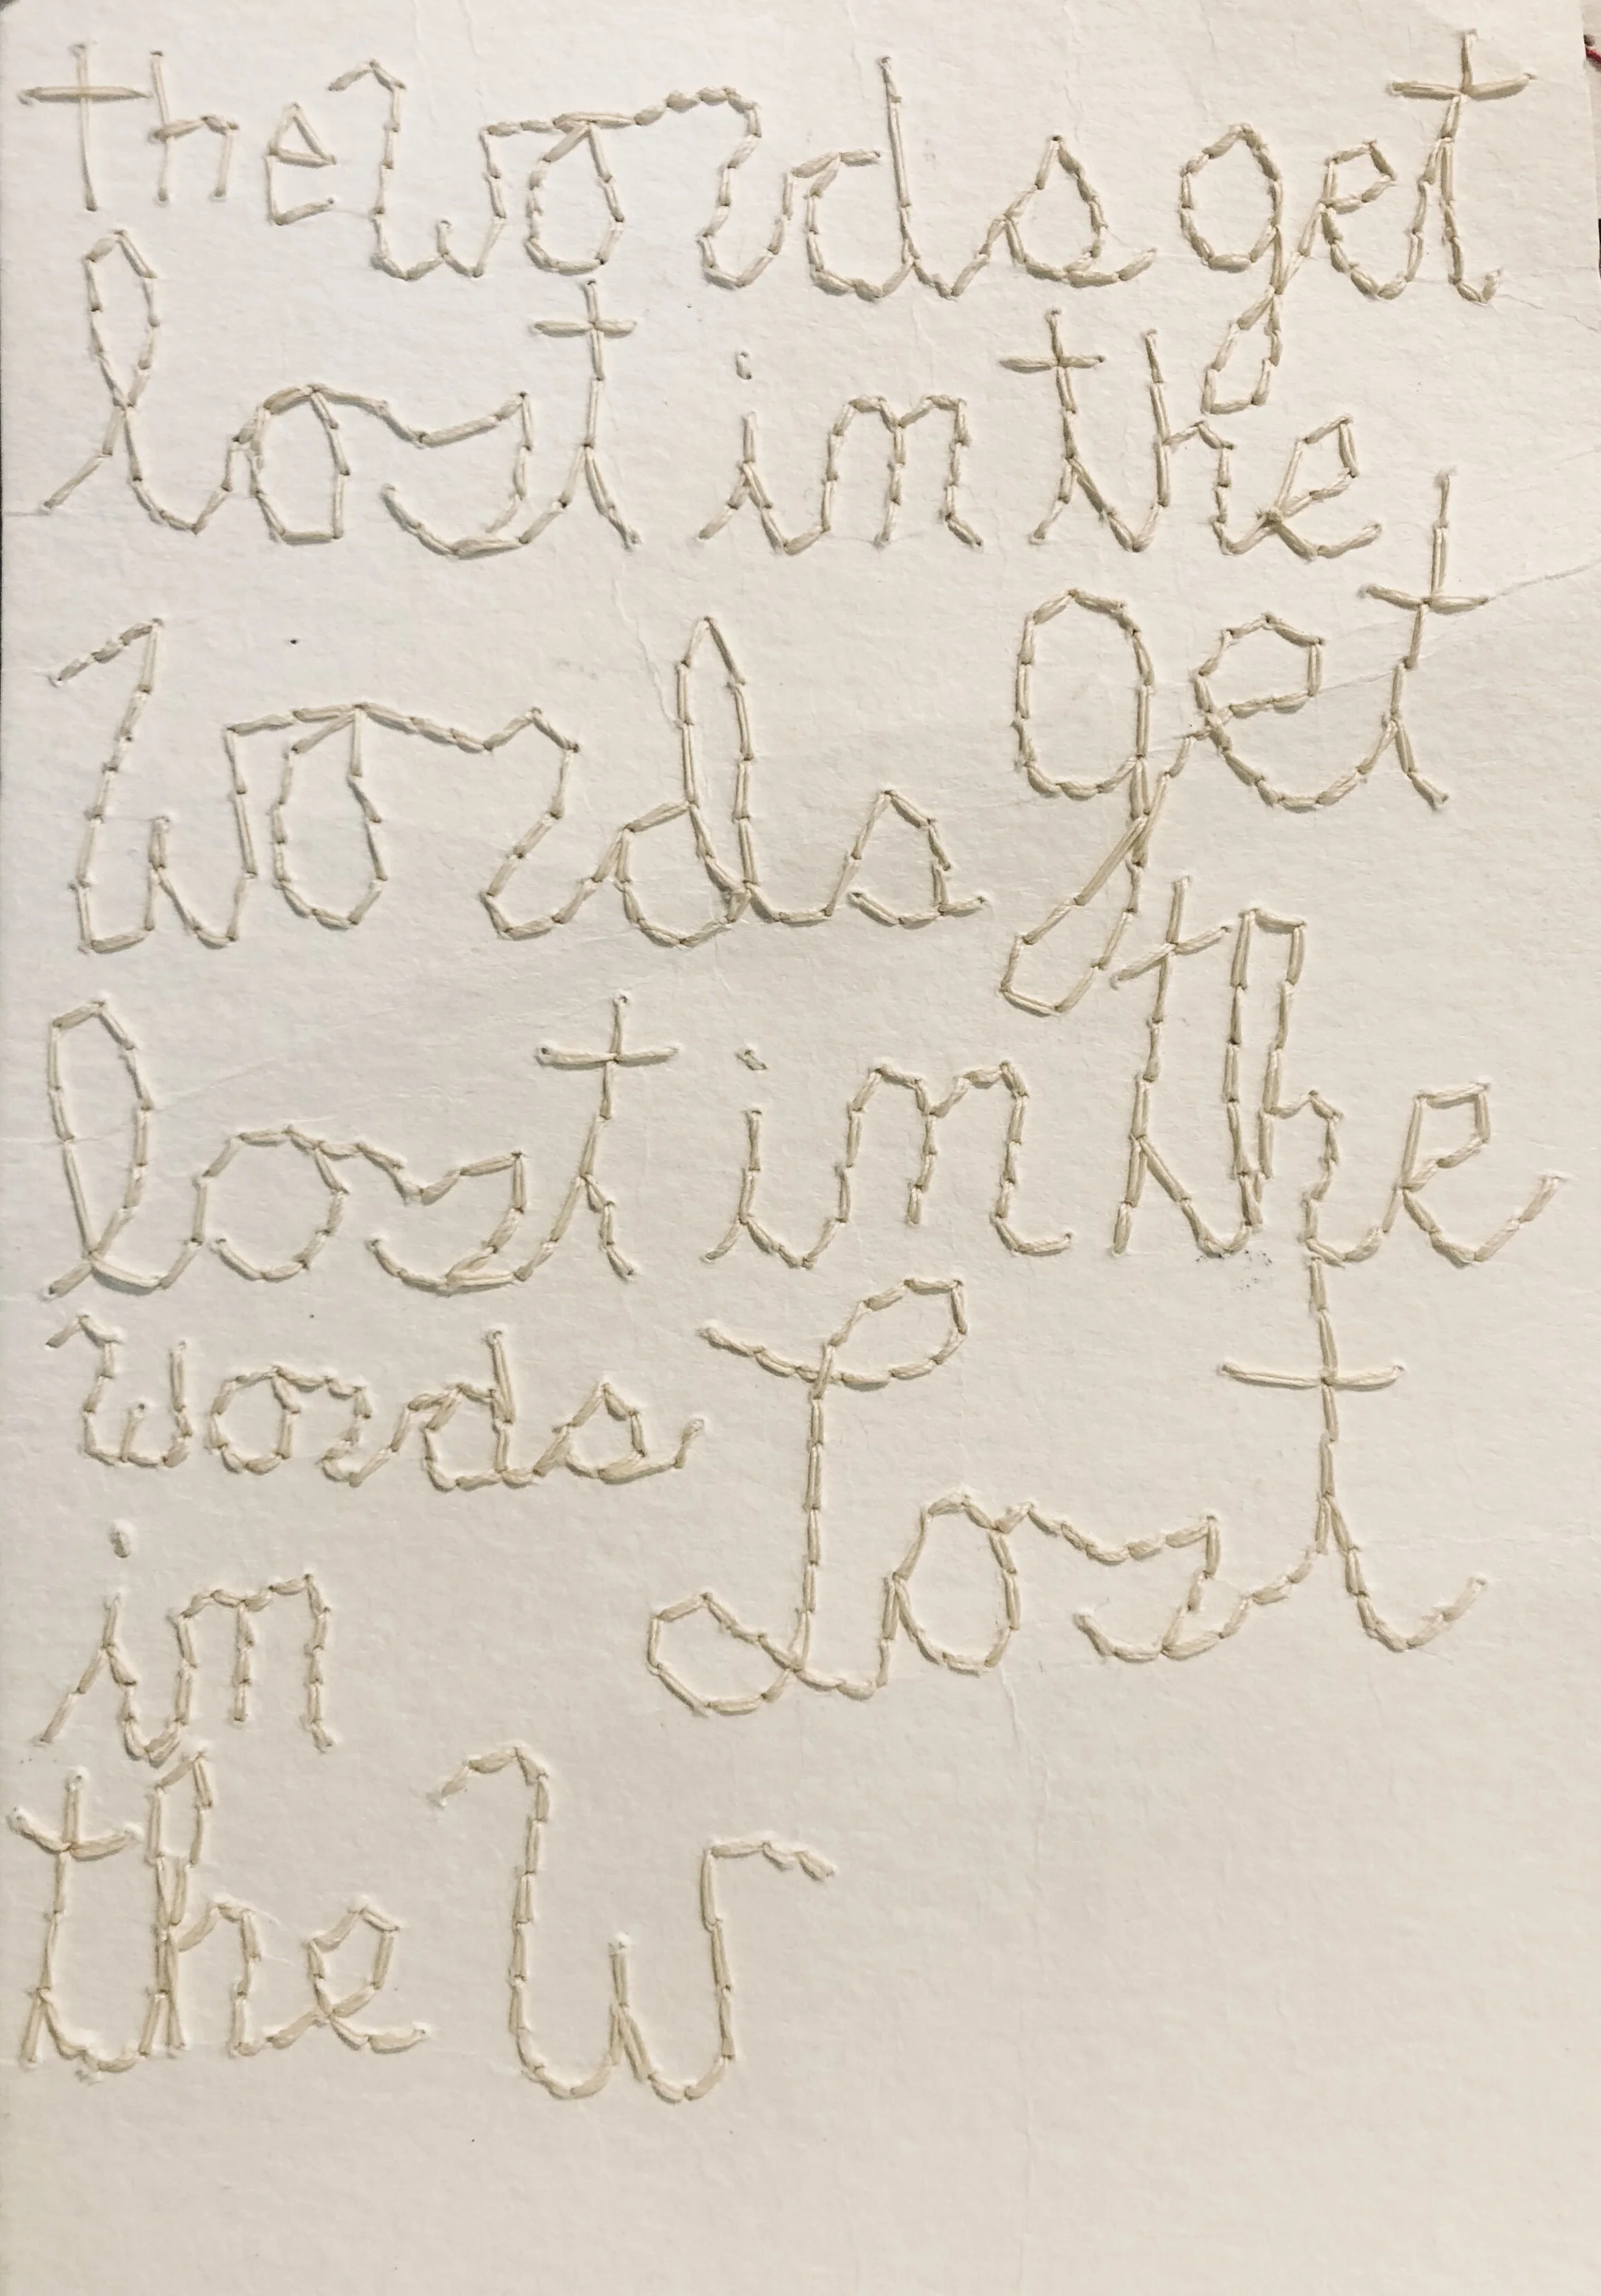 the words get
lost in the
words get
lost in the
words Lost
in
the w